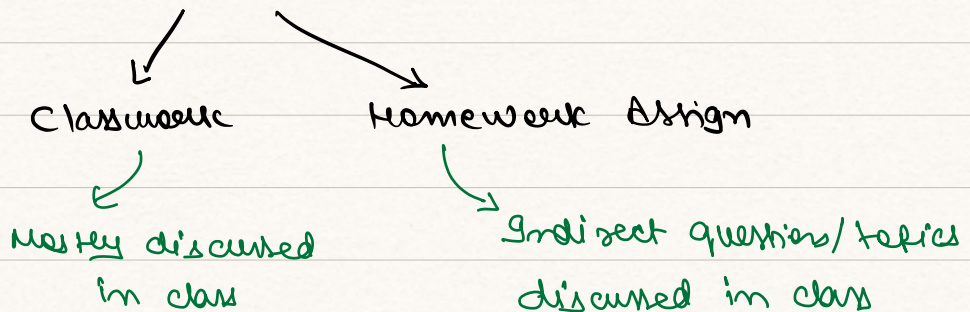 Classwork
Homework Assign
Mostly discussed
in class
Indirect question/topics
discussed in class